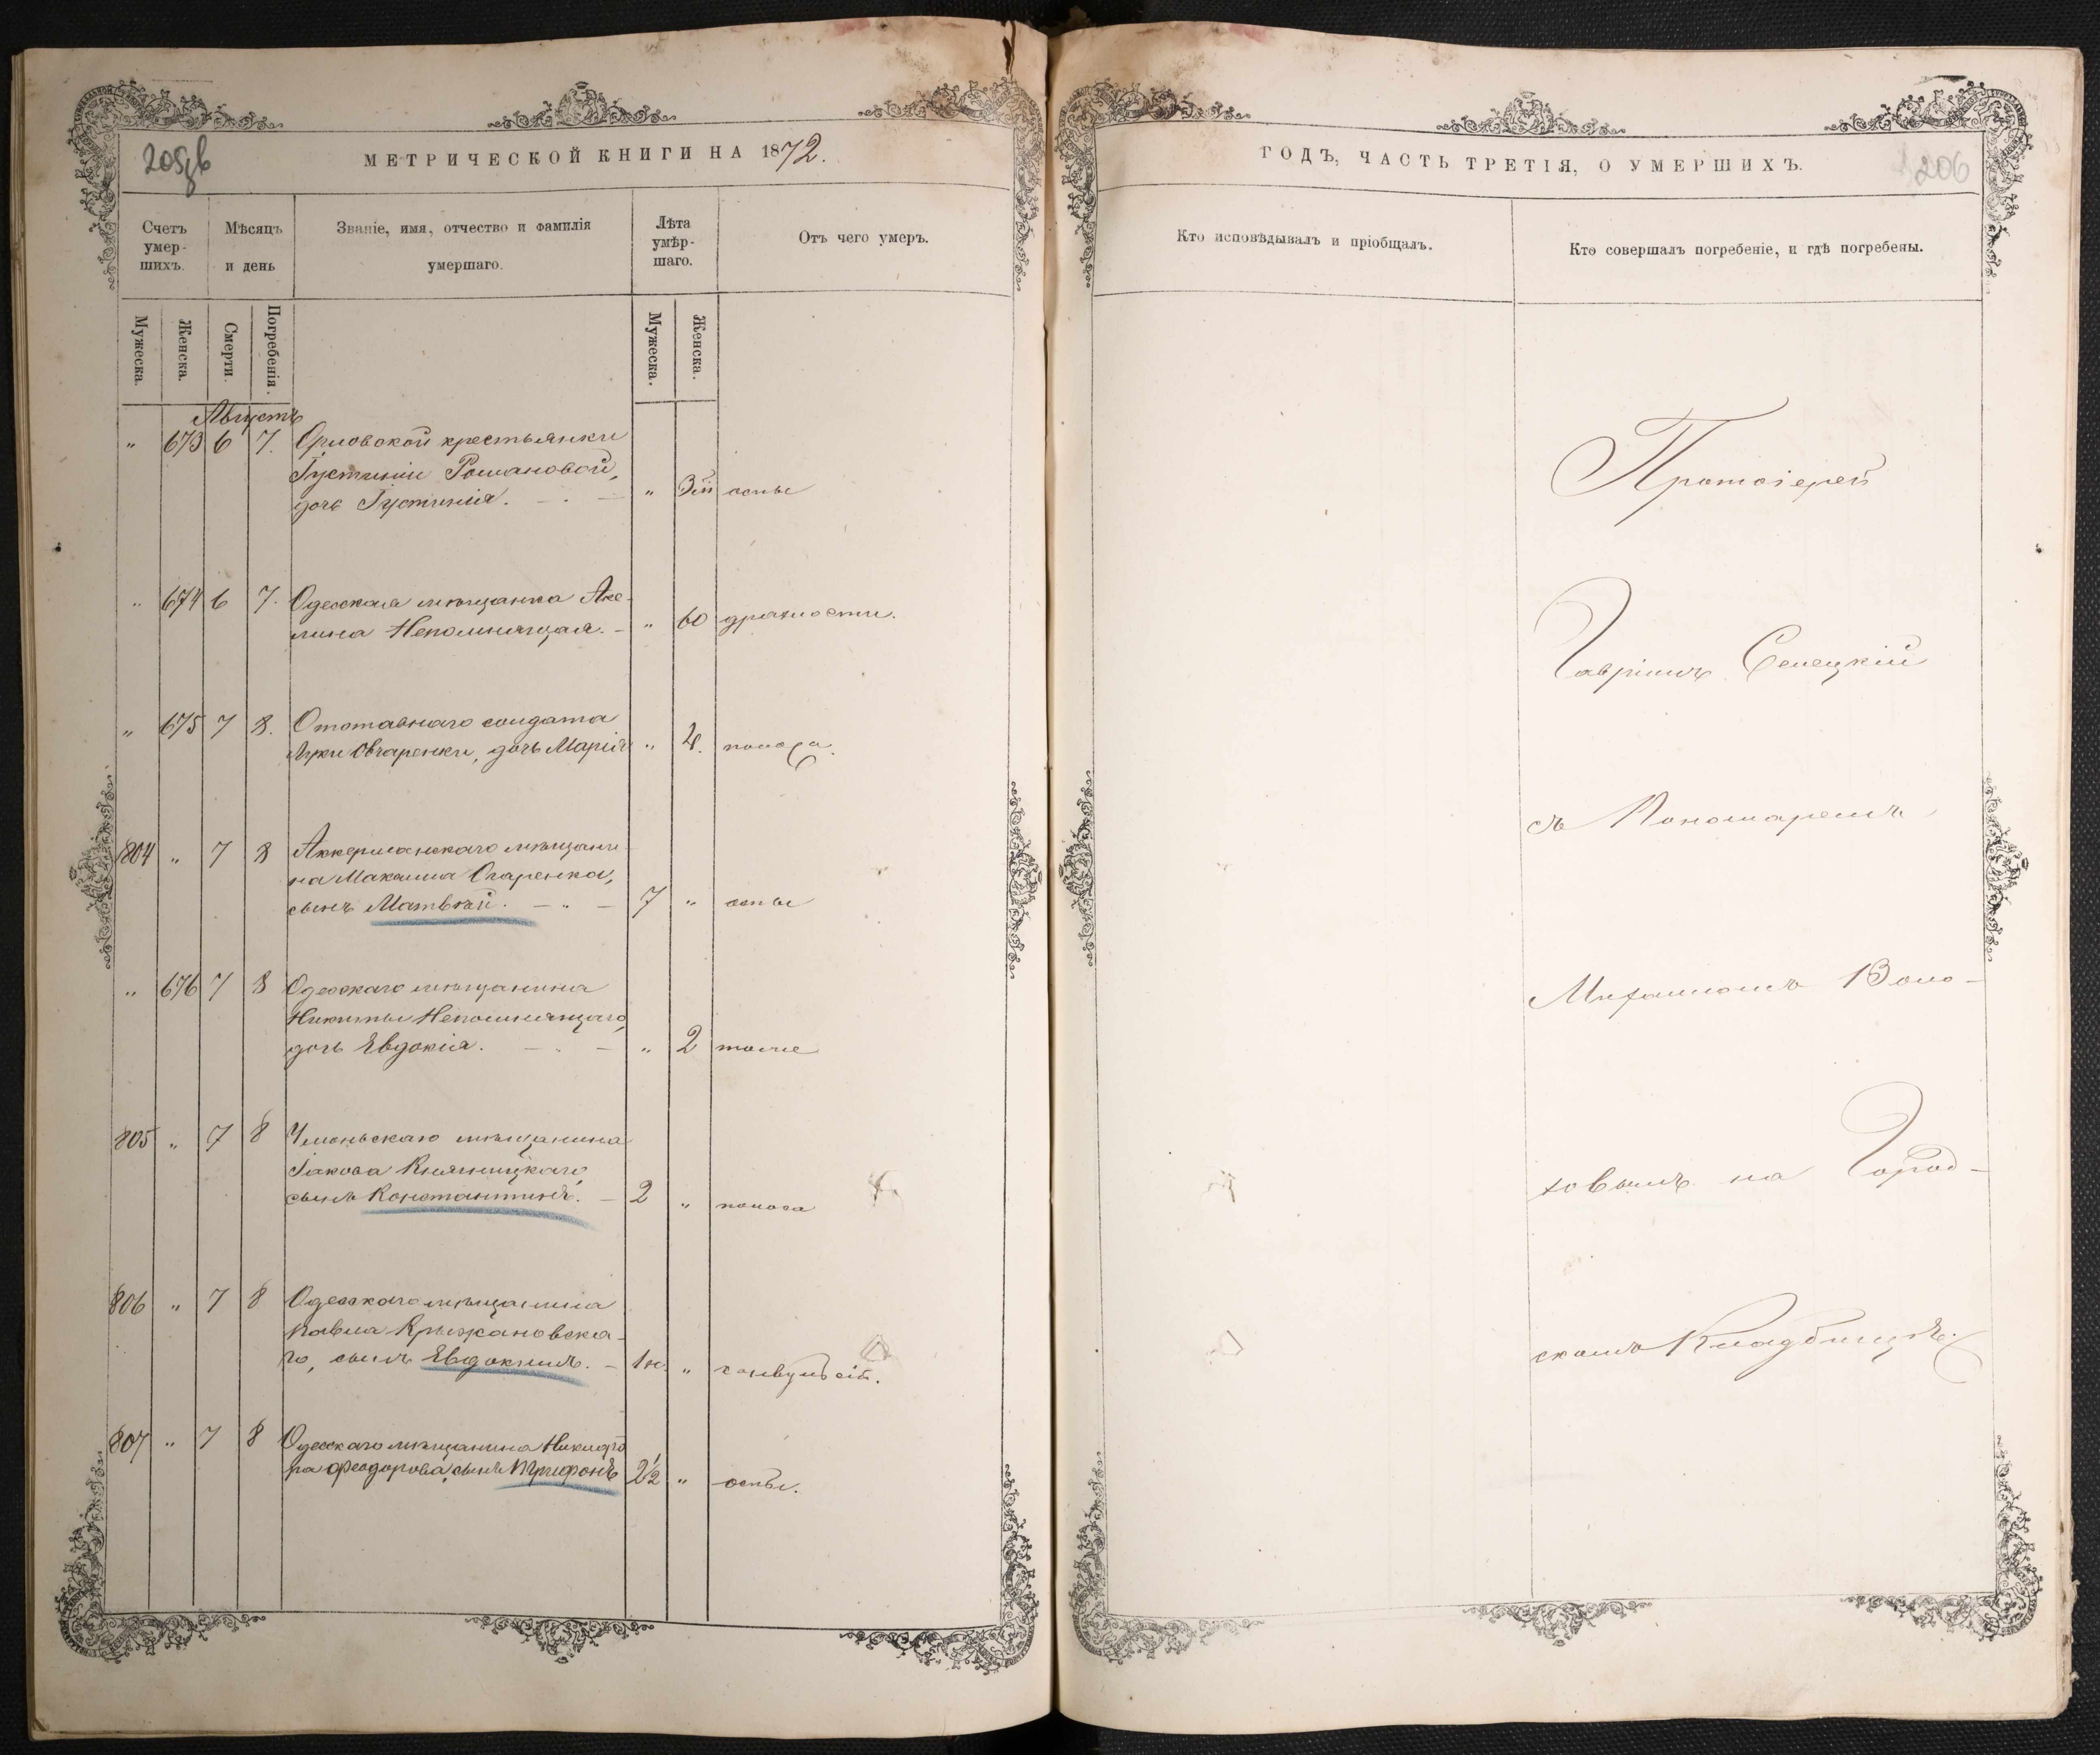 205об
МЕТРИЧЕСКОЙ КНИГИ НА 1872.
Счетъ умер-
шихъ.
Мѣсяцъ
и день
Званіе, имя, отчество и фамилія
умершаго.
Лѣта
умѣр-
шаго.
Отъ чего умеръ.
Мужеска.
Женска.
Смерти.
Погребенія.
Мужеска.
Женска.
Августъ
" 673 6 7. Орловской крестьянки
Іустиніи Романовой,
дочь Іустинія. " оспы
" 674 6 7. Одесская мѣщанка Аке-
лина Непомнящая. " 60 дряхлости.
" 675 7 8. Отставнаго солдата
Луки Овчаренки, дочь Марія " 4. поноса.
804 " 7 8 Аккерманскаго мѣщани-
на Максима Огаренка,
сынъ Матвѣй. 7 " оспы
" 676 7 8 Одесскаго мѣщанина
Никиты Непомнящаго,
дочь Евдокія. " 2 тоже
805 " 7 8 Уманьскаго мѣщанина
Іакова Княжницкаго,
сынъ Константинъ. 2 " поноса
806 " 7 8 Одесскаго мѣщанина
Павла Крыжановска-
го, сынъ Евдокимъ. 1н. " конвульсій.
807 " 7 8 Одесскаго мѣщанина Никифо
ра Феодорова, сынъ Трифонъ 2½ " оспы.
ГОДЪ, ЧАСТЬ ТРЕТІЯ, О УМЕРШИХЪ.
206
Кто исповѣдывалъ и пріобщалъ.
Кто совершалъ погребеніе, и гдѣ погребены.
Протоіерей
Гавріилъ Селецкій
съ Пономаремъ
Михаиломъ Воло-
ховымъ на Город-
скомъ Кладбищѣ.